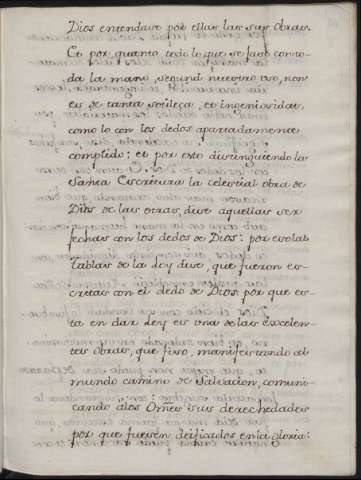 Dios entendase por ellas las sus Obras.
Et por quanto todo lo que se fase con to-
da la mano, segund nuestro vso, non
es de tanta sotileça, et ingeniosidat,
como lo con los dedos apartadamente
complido; et por esto distinguiendo la
Santa Escritura la celestial obra de
Dios de las otras, dise aquellas ser
fechas con los dedos de Dios: por eso las
Tablas de la Ley dise, que fueron es-
critas con el dedo de Dios por que es-
ta en dar Ley es vna de las Excelen-
tes Obras, que fiso, manifestando al
mundo camino de Salvacion, comuni-
cando alos Omẽs sus derechedades
por que fuesen deificados en la gloria: